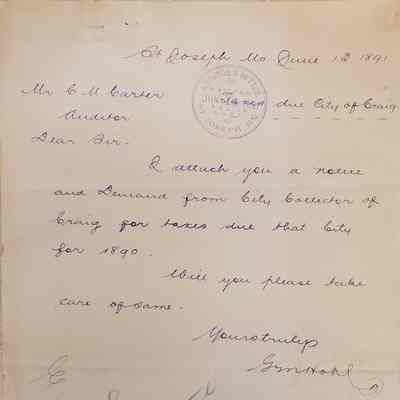 St Joseph Mo June 12 1891
Mr C M Carter
due City of Craig
Auditor
Dear Sir.
I attach you a notice
and Demand from City Collector of
Craig for taxes due that City
for 1890.
Will you please take
care of same.
Yours truly